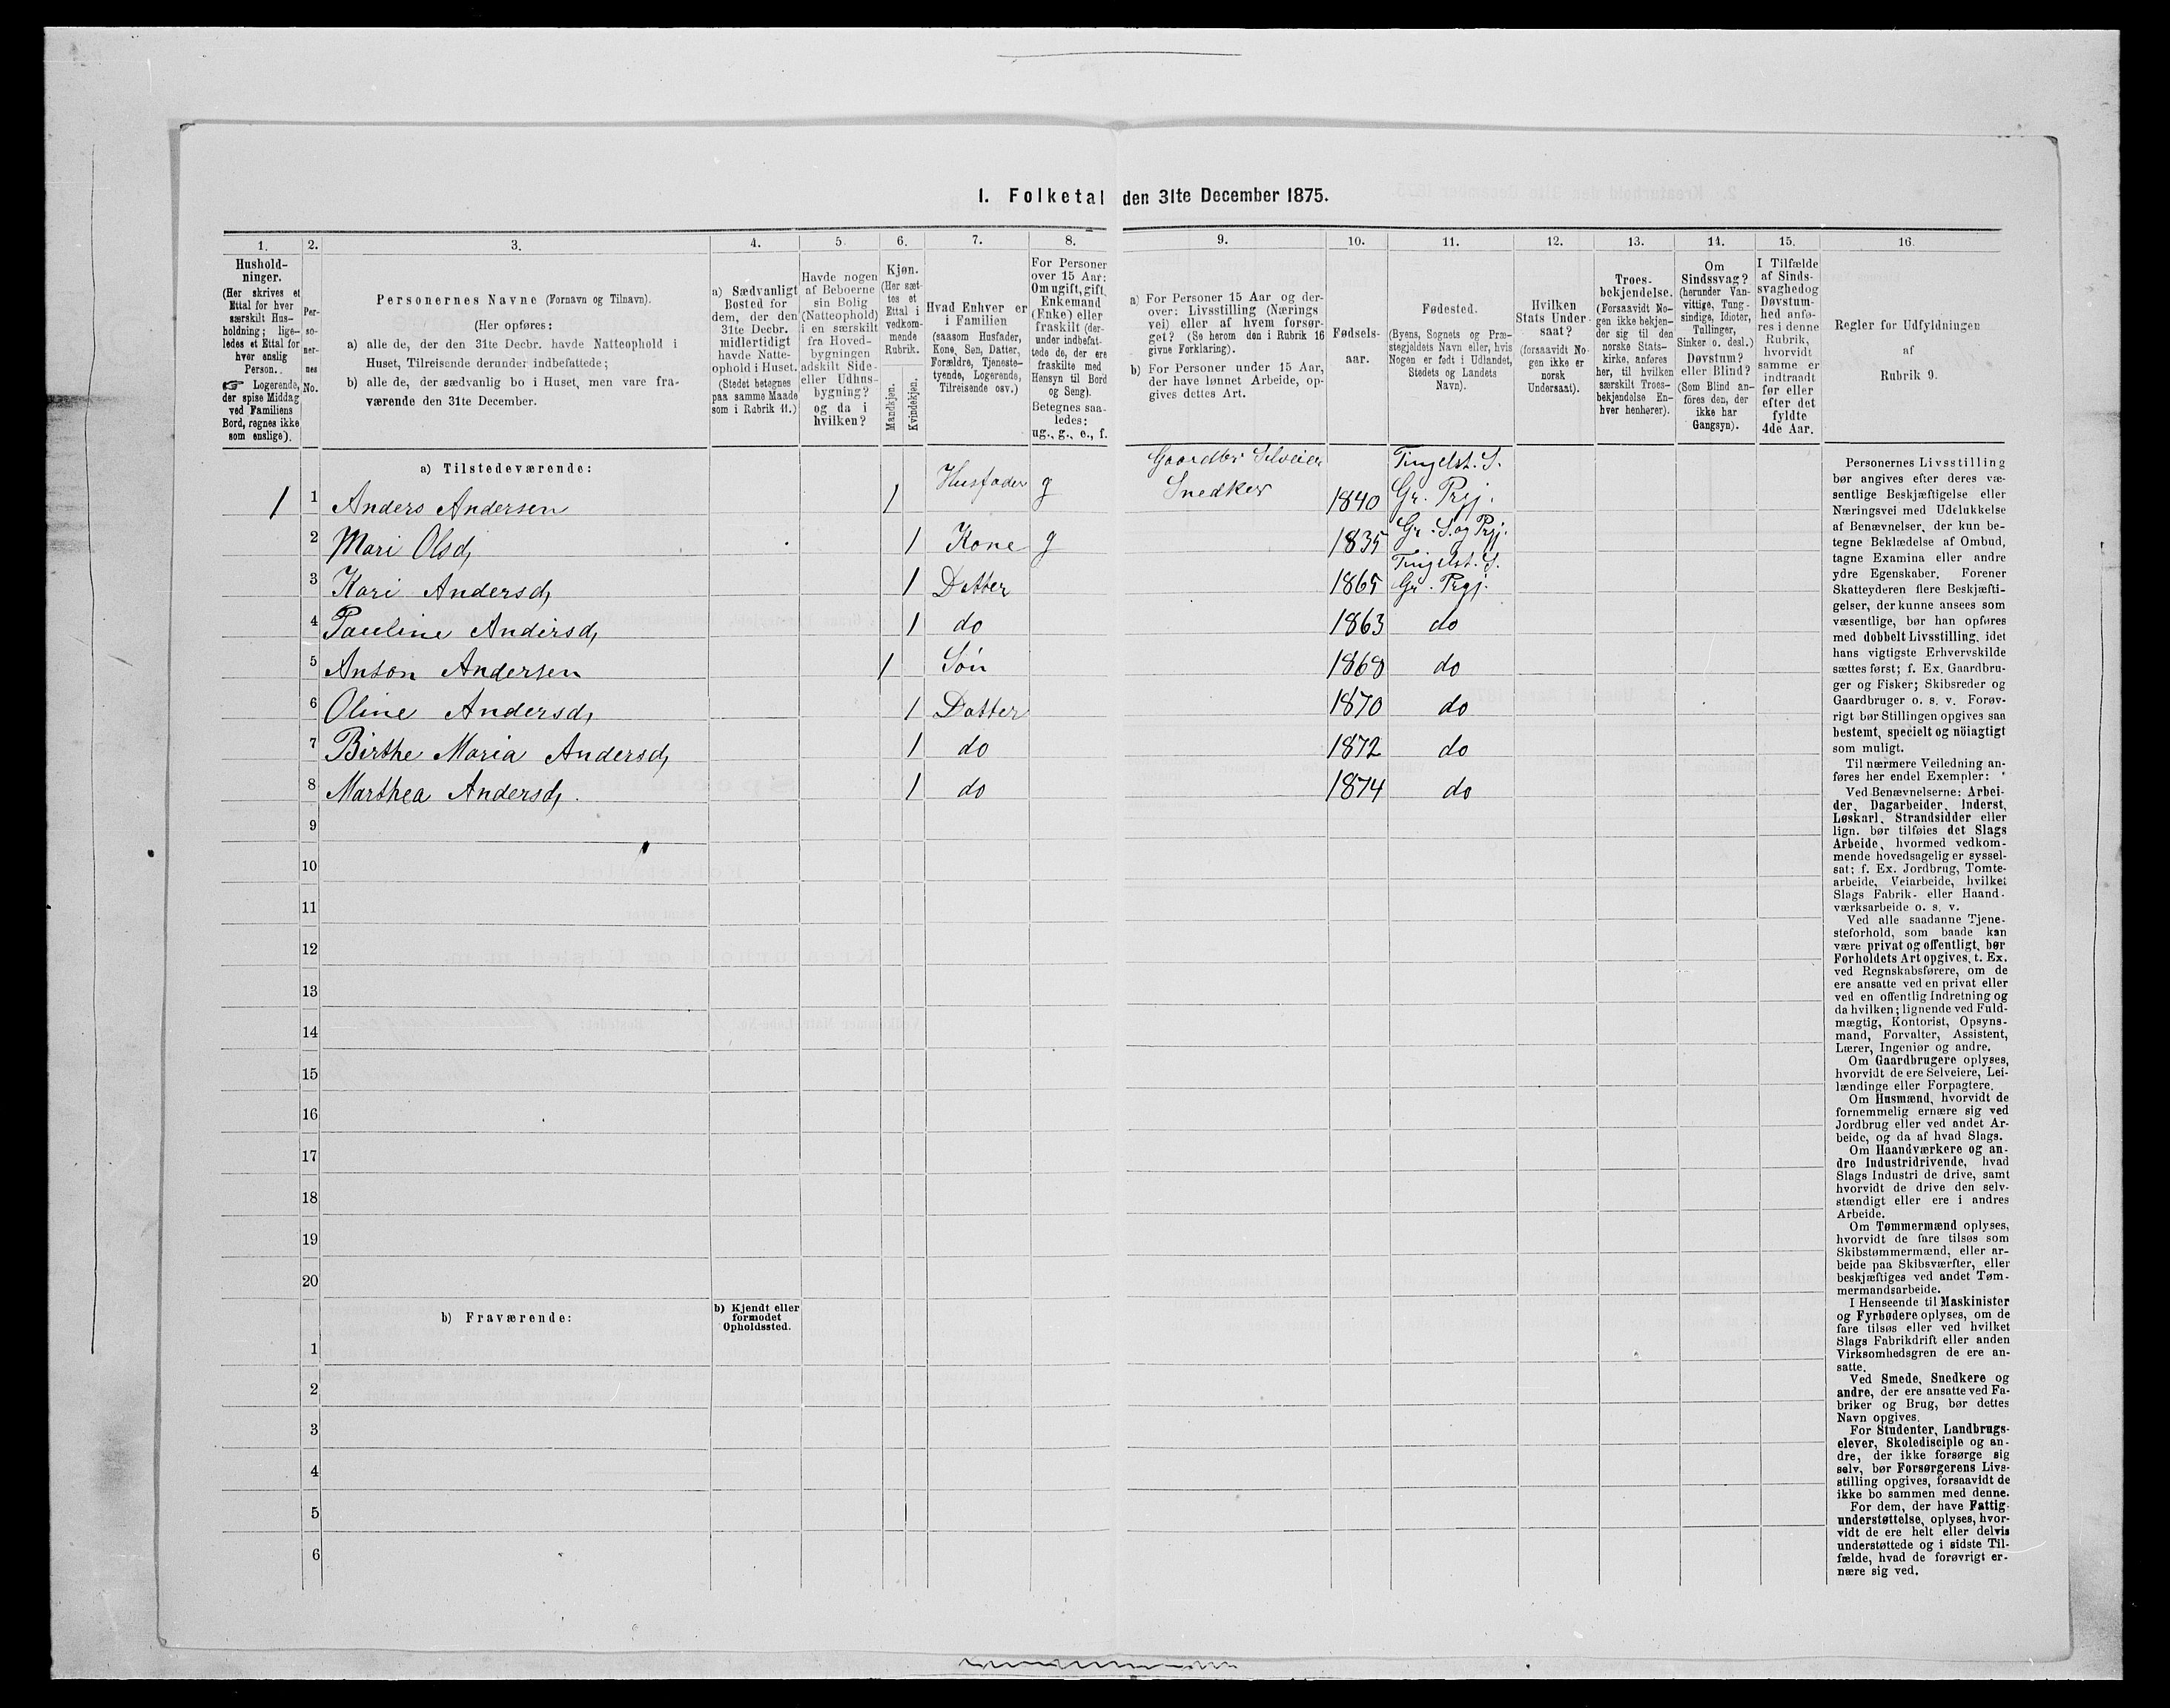 1. Folketal den 31te December 1875.
1. 2. 3. 4. 5. 6. 7. 8. 9. 10. 11. 12. 13. 14. 15. 16.
Hushold-
ninger.
(Her skrives et
Ettal for hver
særskilt Hus-
holdning; lige-
ledes et Ettal for
hver enslig
Person.
☞ Logerende,
der spise Middag
ved Familiens
Bord, regnes ikke
som enslige).
Per-
so-
ner-
nes
No.
Personernes Navne (Fornavn og Tilnavn).
(Her opføres:
a) alle de, der den 31te Decbr. havde Natteophold i
Huset, Tilreisende derunder indbefattede;
b) alle de, der sædvanlig bo i Huset, men vare fra-
værende den 31te December.
a) Sædvanligt
Bosted for
dem, der den
31te Decbr.
midlertidigt
havde Natte-
ophold i Huset.
(Stedet betegnes
paa samme Maade
som i Rubrik 11.)
Havde nogen
af Beboerne
sin Bolig
(Natteophold)
i en særskilt
fra Hoved-
bygningen
adskilt Side-
eller Udhus-
bygning?
og da i
hvilken?
Kjøn.
(Her sæt-
tes et
Ettal i
vedkom-
mende
Rubrik.
Mandkjøn.
Kvindekjøn.
Hvad Enhver er
i Familien
(saasom Husfader,
Kone, Søn, Datter,
Forældre, Tjeneste-
tyende, Logerende,
Tilreisende osv.)
For Personer
over 15 Aar:
Om ugift, gift,
Enkemand
(Enke) eller
fraskilt (der-
under indbefat-
tede de, der ere
fraskilte med
Hensyn til Bord
og Seng).
Betegnes saa-
ledes:
ug., g., e., f.
a) For Personer 15 Aar og der-
over: Livsstilling (Nærings
vei) eller af hvem forsør-
get? (Se herom den i Rubrik 16
givne Forklaring).
b) For Personer under 15 Aar,
der have lønnet Arbeide, op-
gives dettes Art.
Fødsels-
aar.
Fødested.
(Byens, Sognets og Præ-
stegjeldets Navn eller, hvis
Nogen er født i Udlandet,
Stedets og Landets
Navn).
Hvilken
Stats Under-
saat?
(forsaavidt No-
gen ikke er
norsk
Undersaat).
Troes-
bekjendelse.
(Forsaavidt No-
gen ikke bekjen-
der sig til den
norske Stats-
kirke, anføres
her, til hvilken
særskilt Troes-
bekjendelse En-
hver henhører).
Om
Sindssvag?
(herunder Van-
vittige, Tung-
sindige, Idioter,
Tullinger,
Sinker o. desl.)
Døvstum?
eller Blind?
(Som Blind an-
føres den, der
ikke har
Gangsyn).
I Tilfælde
af Sinds-
svaghed og
Døvstum-
hed anfø-
res i denne
Rubrik,
hvorvidt
samme er
indtraadt
før eller
efter det
fyldte
4de Aar.
Regler for Udfyldningen
af
Rubrik 9.
a) Tilstedeværende:
1 1 Anders Andersen 1 Husfader g Gaardbr Selveier Snedker 1840 Tingelst. S. Gr. Prgj.
2 Mari Olsd, 1 Kone g 1835 Gr. S. og Prgj.
3 Kari Andersd, 1 Datter 1865 Tingelst. S. Gr. Prgj.
4 Pauline Andersd, 1 do 1863 do
5 Anton Andersen 1 Søn 1868 do
6 Oline Andersd, 1 Datter 1870 do
7 Birthe Maria Andersd, 1 do 1872 do
8 Marthea Andersd, 1 do 1874 do
9
10
11
12
13
14
15
16
17
18
19
20
b) Fraværende:
b) Kjendt eller
formodet
Opholdssted.
1
2
3
4
5
6
Personernes Livsstilling
bør angives efter deres væ-
sentlige Beskjæftigelse eller
Næringsvei med Udelukkelse
af Benævnelser, der kun be-
tegne Beklædelse af Ombud,
tagne Examina eller andre
ydre Egenskaber. Forener
Skatteyderen flere Beskjæfti-
gelser, der kunne ansees som
væsentlige, bør han opføres
med dobbelt Livsstilling, idet
hans vigtigste Erhvervskilde
sættes først; f. Ex. Gaardbru-
ger og Fisker; Skibsreder og
Gaardbruger o. s. v. Forøv-
rigt bør Stillingen opgives saa
bestemt, specielt og nöiagtigt
som muligt.
Til nærmere Veiledning an-
føres her endel Exempler:
Ved Benævnelserne: Arbei-
der, Dagarbeider, Inderst,
Løskarl, Strandsidder eller
lign. bør tilføies det Slags
Arbeide, hvormed vedkom-
mende hovedsagelig er syssel-
sat; f. Ex. Jordbrug, Tomte-
arbeide, Veiarbeide, hvilket
Slags Fabrik- eller Haand-
værksarbeide o. s. v.
Ved alle saadanne Tjene-
steforhold, som baade kan
være privat og offentligt, bør
Forholdets Art opgives, t. Ex.
ved Regnskabsførere, om de
ere ansatte ved en privat eller
ved en offentlig Indretning og
da hvilken; lignende ved Fuld-
mægtig, Kontorist, Opsyns-
mand, Forvalter, Assistent,
Lærer, Ingeniør og andre.
Om Gaardbrugere oplyses,
hvorvidt de ere Selveiere, Lei-
lændinge eller Forpagtere.
Om Husmænd, hvorvidt de
fornemmelig ernære sig ved
Jordbrug eller ved andet Ar-
beide, og da af hvad Slags.
Om Haandværkere og an-
dre Industridrivende, hvad
Slags Industri de drive, samt
hvorvidt de drive den selv-
stændigt eller ere i andres
Arbeide.
Om Tømmermænd oplyses,
hvorvidt de fare tilsøs som
Skibstømmermænd, eller ar-
beide paa Skibsværfter, eller
beskjæftiges ved andet Tøm-
mermandsarbeide.
I Henseende til Maskinister
og Fyrbødere oplyses, om de
fare tilsøs eller ved hvilket
Slags Fabrikdrift eller anden
Virksomhedsgren de ere an-
satte.
Ved Smede, Snedkere og
andre, der ere ansatte ved Fa-
briker og Brug, bør dettes
Navn opgives.
For Studenter, Landbrugs-
elever, Skoledisciple og an-
dre, der ikke forsørge sig
selv, bør Forsørgerens Livs-
stilling opgives, forsaavidt de
ikke bo sammen med denne.
For dem, der have Fattig-
understøttelse, oplyses, hvor-
vidt de ere helt eller delvis
understøttede og i sidste Til-
fælde, hvad de forøvrigt er-
nære sig ved.